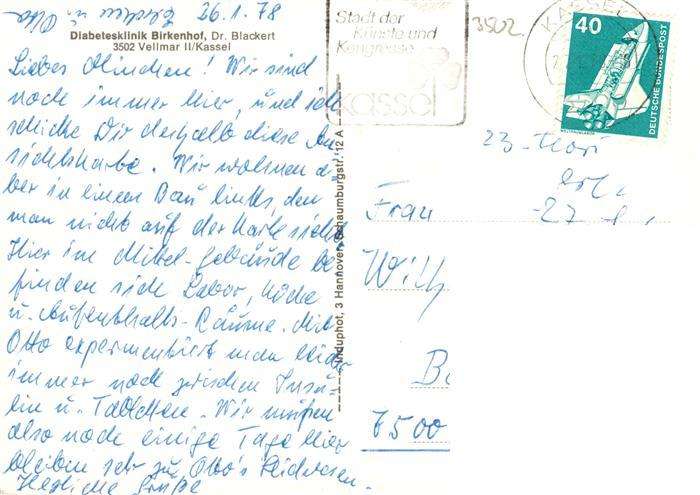 26.1.78
Otto
Diabetesklinik Birkenhof, Dr. Blackert
3502 Vellmar II/Kassel
Liebes Minchen! Wir sind
noch immer hier, und ich
schicke Dir deshalb diese An
sichtskarte. Wir wohnen a
ber in einem Bau links, den
man nicht auf der Karte sieht.
Hier im Mittel-gebäude be
finden sich Labor, Küche
u. Aufenthalts-Räume. Mit
Otto experimentiert man leider
immer noch zwischen Insu-
lin u. Tabletten. Wir müssen
also noch einige Tage hier
bleiben sehr zu Otto's Leidwesen.
Herzliche Grüße
Induphot, 3 Hannover, Schaumburgstr. 12 A
Stadt der
Künste und
Kongresse
kassel
3502
KASSEL
40
DEUTSCHE BUNDESPOST
Frau
Wilh
B
7500